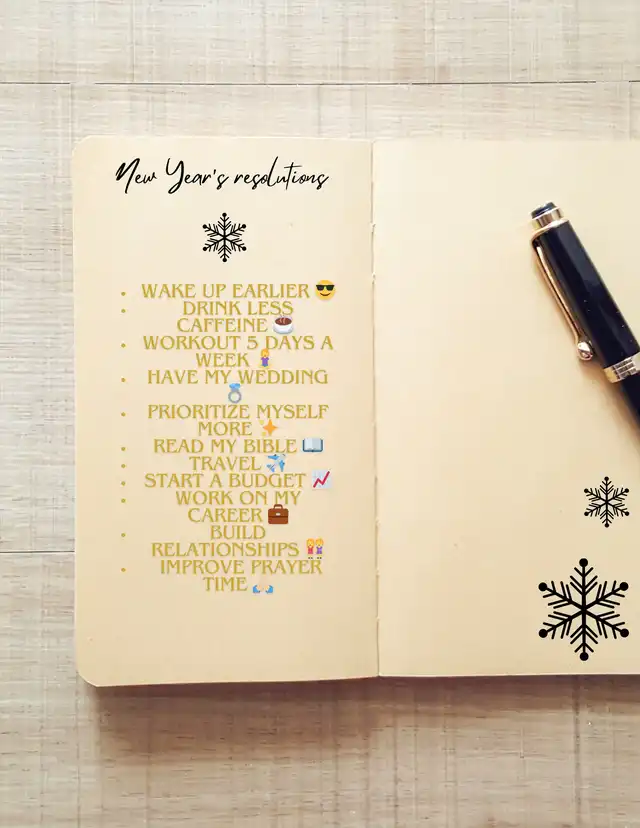 New Year's resolutions
• WAKE UP EARLIER 😎
• DRINK LESS
CAFFEINE ☕
• WORKOUT 5 DAYS A
WEEK 🧘‍♀️
• HAVE MY WEDDING
💍
• PRIORITIZE MYSELF
MORE ✨
• READ MY BIBLE 📖
• TRAVEL ✈️
• START A BUDGET 📈
• WORK ON MY
CAREER 💼
• BUILD
RELATIONSHIPS 👭
• IMPROVE PRAYER
TIME 🙏🏻